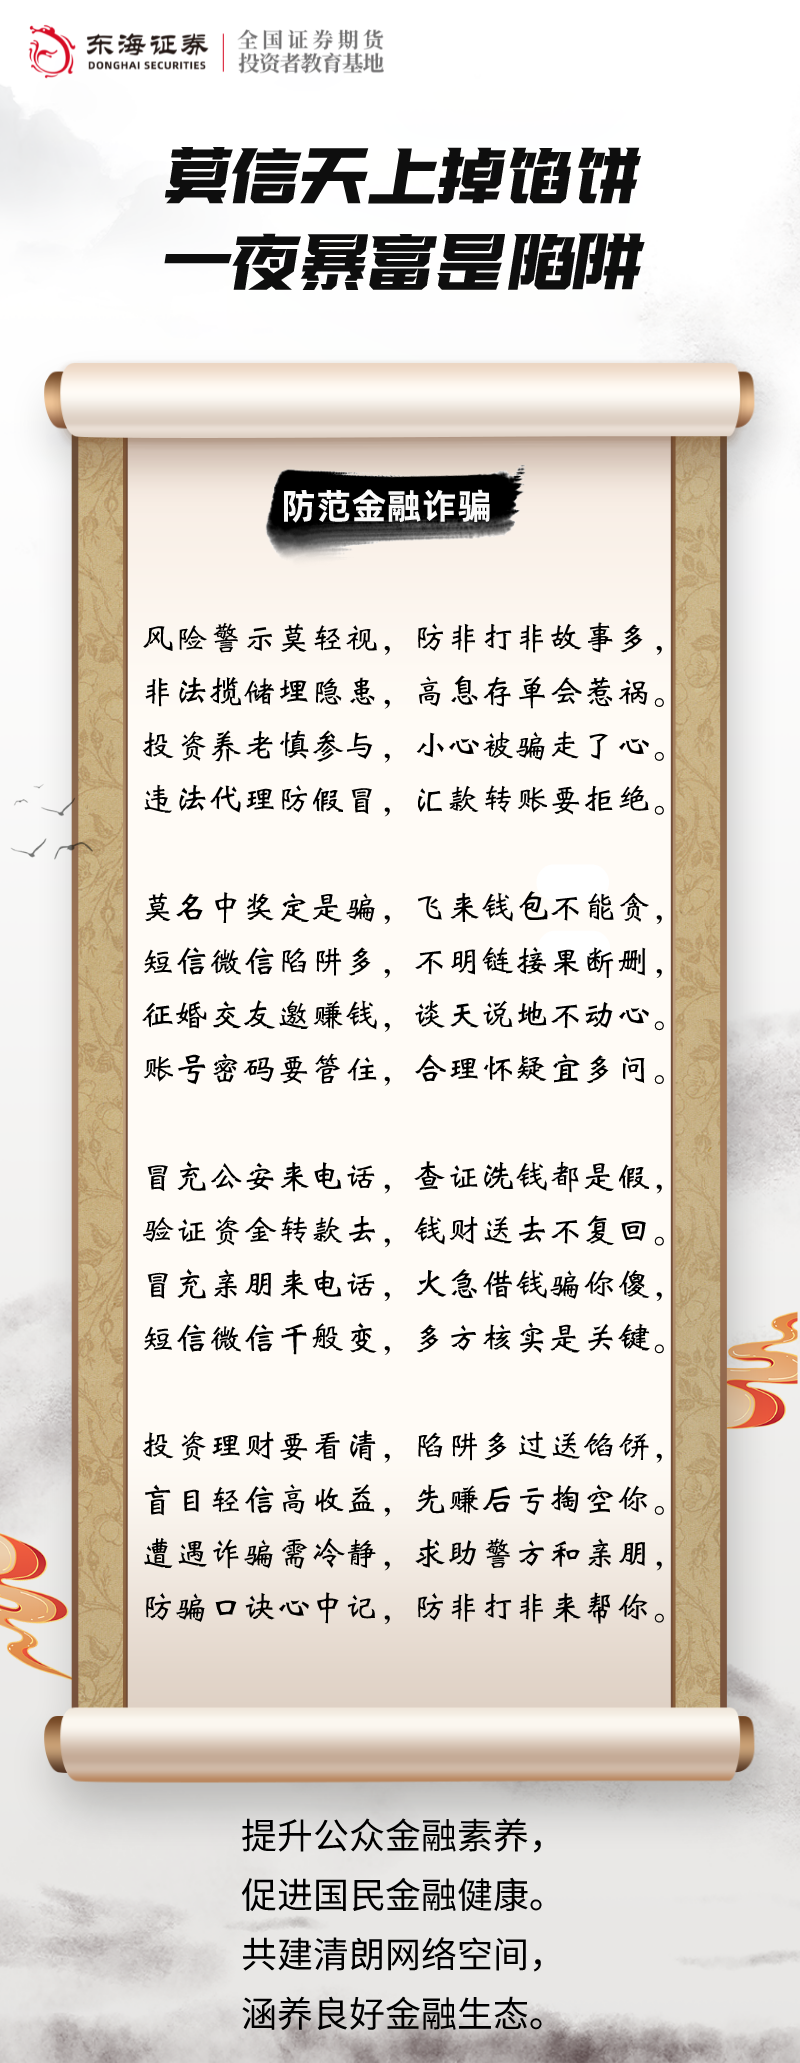 东海证券
DONGHAI SECURITIES
全国证券期货
投资者教育基地
莫信天上掉馅饼
一夜暴富是陷阱
防范金融诈骗
风险警示莫轻视，防非打非故事多，
非法揽储埋隐患，高息存单会惹祸。
投资养老慎参与，小心被骗走了心。
违法代理防假冒，汇款转账要拒绝。
莫名中奖定是骗，飞来钱包不能贪，
短信微信陷阱多，不明链接果断删，
征婚交友邀赚钱，谈天说地不动心。
账号密码要管住，合理怀疑宜多问。
冒充公安来电话，查证洗钱都是假，
验证资金转款去，钱财送去不复回。
冒充亲朋来电话，火急借钱骗你傻，
短信微信千般变，多方核实是关键。
投资理财要看清，陷阱多过送馅饼，
盲目轻信高收益，先赚后亏掏空你。
遭遇诈骗需冷静，求助警方和亲朋，
防骗口诀心中记，防非打非来帮你。
提升公众金融素养，
促进国民金融健康。
共建清朗网络空间，
涵养良好金融生态。